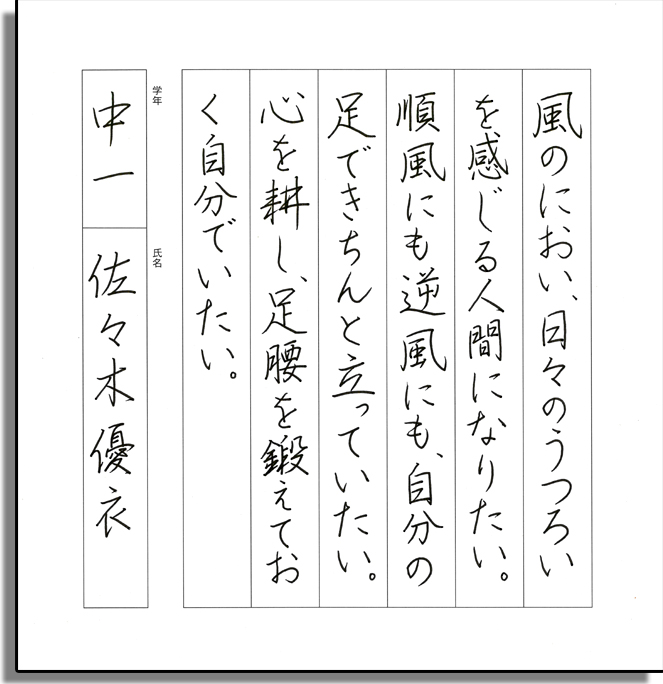 風のにおい、日々のうつろい
を感じる人間になりたい。
順風にも逆風にも、自分の
足できちんと立っていたい。
心を耕し、足腰を鍛えてお
く自分でいたい。
学年
中一
氏名
佐々木優衣